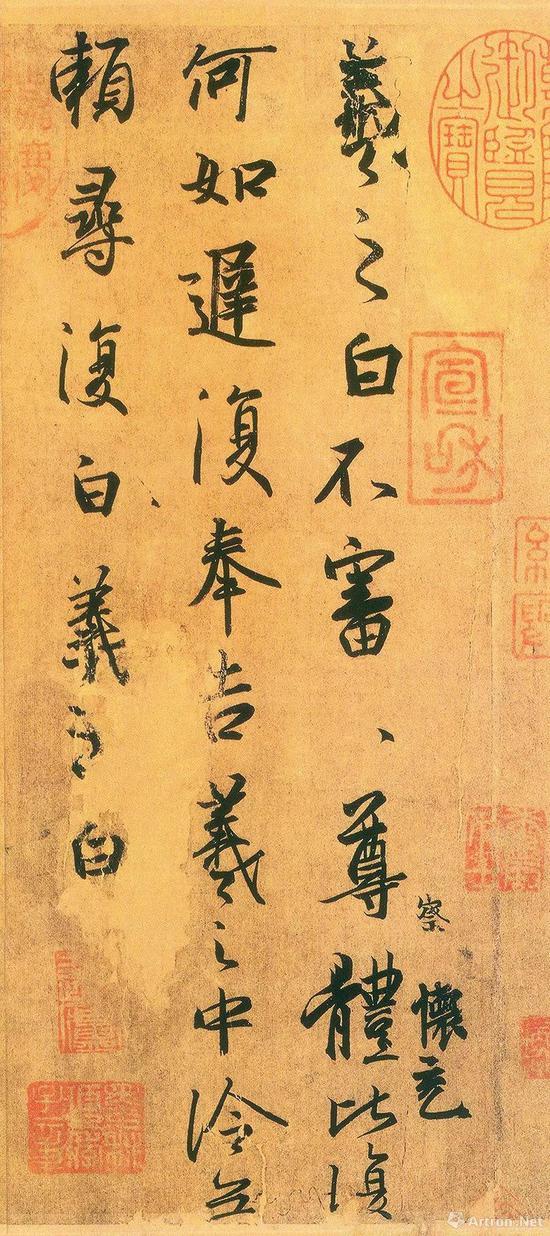 羲之白不審、尊體比復
察
懷充
何如遲復奉告羲之中冷無
賴尋復白羲之白
御覽
之寶
宣和
Artron.Net